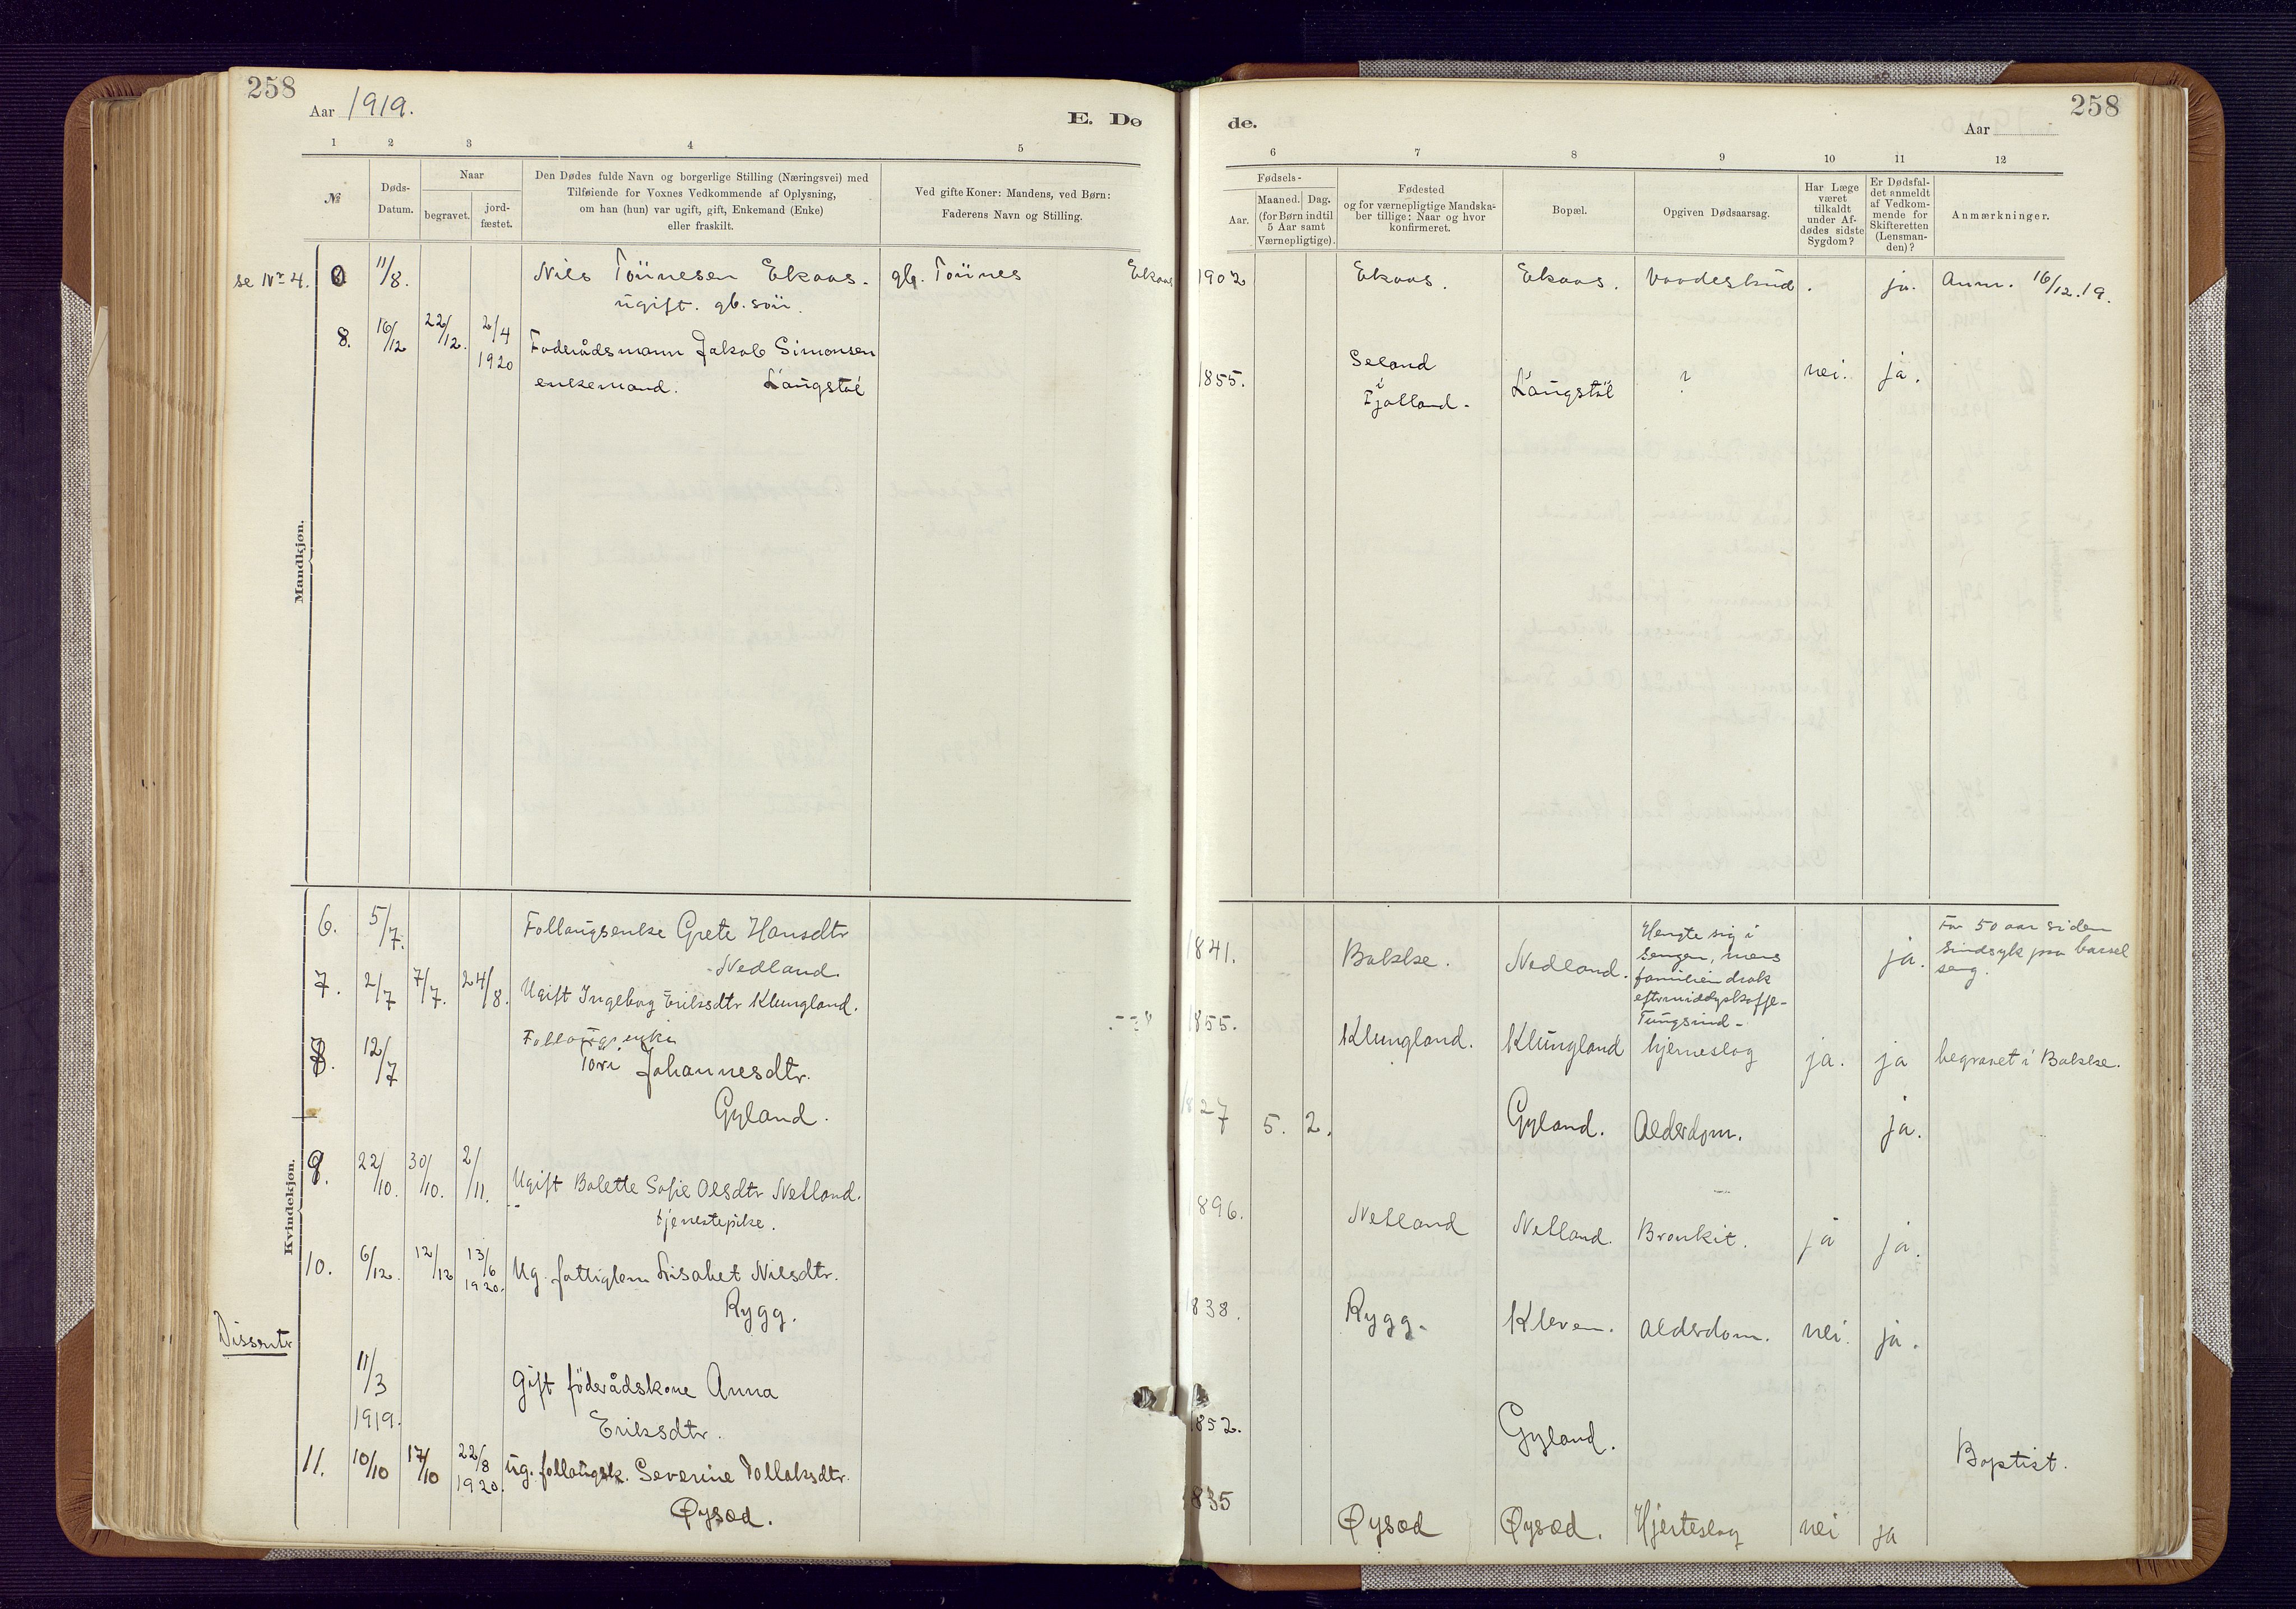 258
Aar 1919.
E. Dø
1 2 3 4 5
№
Døds-
Datum.
Naar
begravet.
jord-
fæstet.
Den Dødes fulde Navn og borgerlige Stilling (Næringsvei) med
Tilføiende for Voxnes Vedkommende af Oplysning,
om han (hun) var ugift, gift, Enkemand (Enke)
eller fraskilt.
Ved gifte Koner: Mandens, ved Børn:
Faderens Navn og Stilling.
Mandkjøn.
se Nr 4. 11/8. Nils Tönnesen Ekaas. gb. Tönnes Ekaas
ugift. gb. sön.
8. 16/12 22/12. 2/4
1920
Foderådsmann Jakob Simonsen
enkemand. Langstöl
Kvindekjøn.
6. 5/7. Follaugsenke Grete Hansdtr
Nedland.
7. 2/7 7/7. 24/8. Ugift Ingebog Eriksdtr Klungland.
8. 12/7 Follaugsenke
Töri Johannesdtr.
Gyland.
9. 22/10. 30/10. 2/11. Ugift Bolette Sofie Olsdtr Netland.
tjenestepike.
10. 6/12. 12/12 13/6
1920.
Ug. fattiglem Lisabet Nilsdtr.
Rygg.
Dissentr
11/3
1919.
Gift föderådskone Anna
Eriksdtr.
11. 10/10 17/10 22/8
1920.
ug. follaugsk. Severine Tollaksdtr.
Øysæd.
258
de.
Aar
6 7 8 9 10 11 12
Fødsels-
Aar.
Maaned. Dag.
(for Børn indtil
5 Aar samt
Værnepligtige).
Fødested
og for værnepligtige Mandska-
ber tillige: Naar og hvor
konfirmeret.
Bopæl.
Opgiven Dødsaarsag.
Har Læge
været
tilkaldt
under Af-
dødes sidste
Sygdom?
Er Dødsfal-
det anmeldt
af Vedkom-
mende for
Skifteretten
(Lensman-
den)?
Anmærkninger.
1902 Ekaas. Ekaas. Vaadeskud. ja. Anm. 16/12.19.
1855. Seland
i
Fjotland.
Langstöl ? nei. ja.
1841. Bakke. Nedland.
Hengte sig i
sengen, mens
familien drak
eftermiddagskaffe-
Tungsind-
ja.
For 50 aar siden
sindsyk paa barsel
seng.
1855. Klungland. Klungland hjerneslag ja. ja begravet i Bakke.
1827 5. 2. Gyland. Alderdom. ja.
1896. Netland Netland. Bronkit. ja ja.
1838. Rygg. Kleven. Alderdom. nei. ja.
1852. Gyland. Baptist.
1835 Øysæd Øysæd. Hjerteslag nei ja